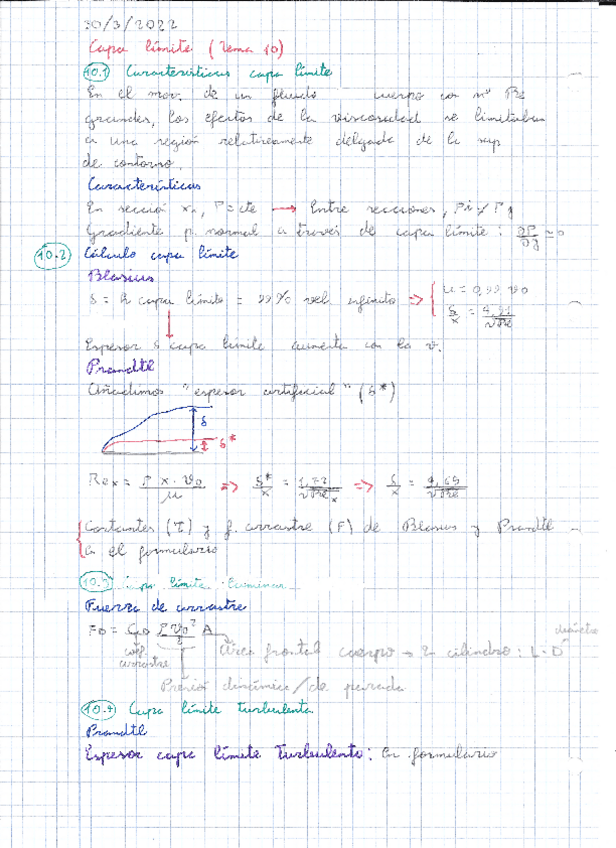 30/3/2022
Capa límite (Tema 10)
10.1 Características capa límite
En el mov. de un fluido cuerpo con nº Re
grandes, los efectos de la viscosidad se limitaban
a una región relativamente delgada de la sup
de contorno.
Características
En sección x₁, P = cte → Entre secciones, Pi ≠ Pj
Gradiente p. normal a través de capa límite: ∂P/∂y ≈ 0
10.2 Cálculo capa límite
Blasius
δ = h capa límite = 99% vel. infinito ⇒ { u = 0,99 v0
δ/x = 4,91/√Re
Espesor δ capa límite aumenta con la v.
Prandtl
Añadimos "espesor artificial" (δ*)
δ
δ*
Rex = ρ x · v0 / μ ⇒ δ*/x = 1,72/√Rex ⇒ δ/x = 4,65/√Re
Cortantes (τ) y f. arrastre (F) de Blasius y Prandtl
en el formulario
10.3 Capa límite
Fuerza de arrastre
FD = CD ρ v0²/2 A
diámetro
coef. arrastre
Área frontal cuerpo → cilindro: L · D
Presión dinámica/de parada
10.4 Capa límite turbulenta
Prandtl
Espesor capa límite turbulento: en formulario